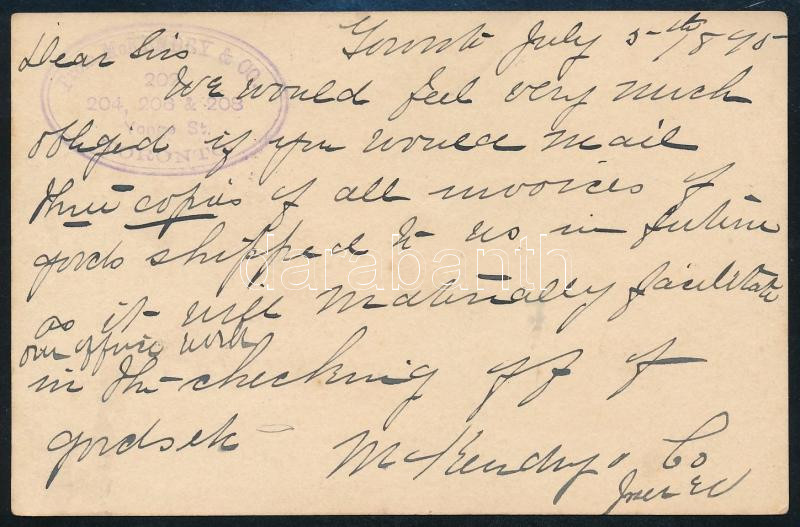 Toronto July 5th 1895
Dear Sirs
McKENDRY & CO.
202,
204, 206 & 208
Yonge St.
TORONTO
We would feel very much
obliged if you would mail
three copies of all invoices of
goods shipped to us in future
as it will materially facilitate
our office work
in the checking off of
goods etc
McKendry & Co
darabanth